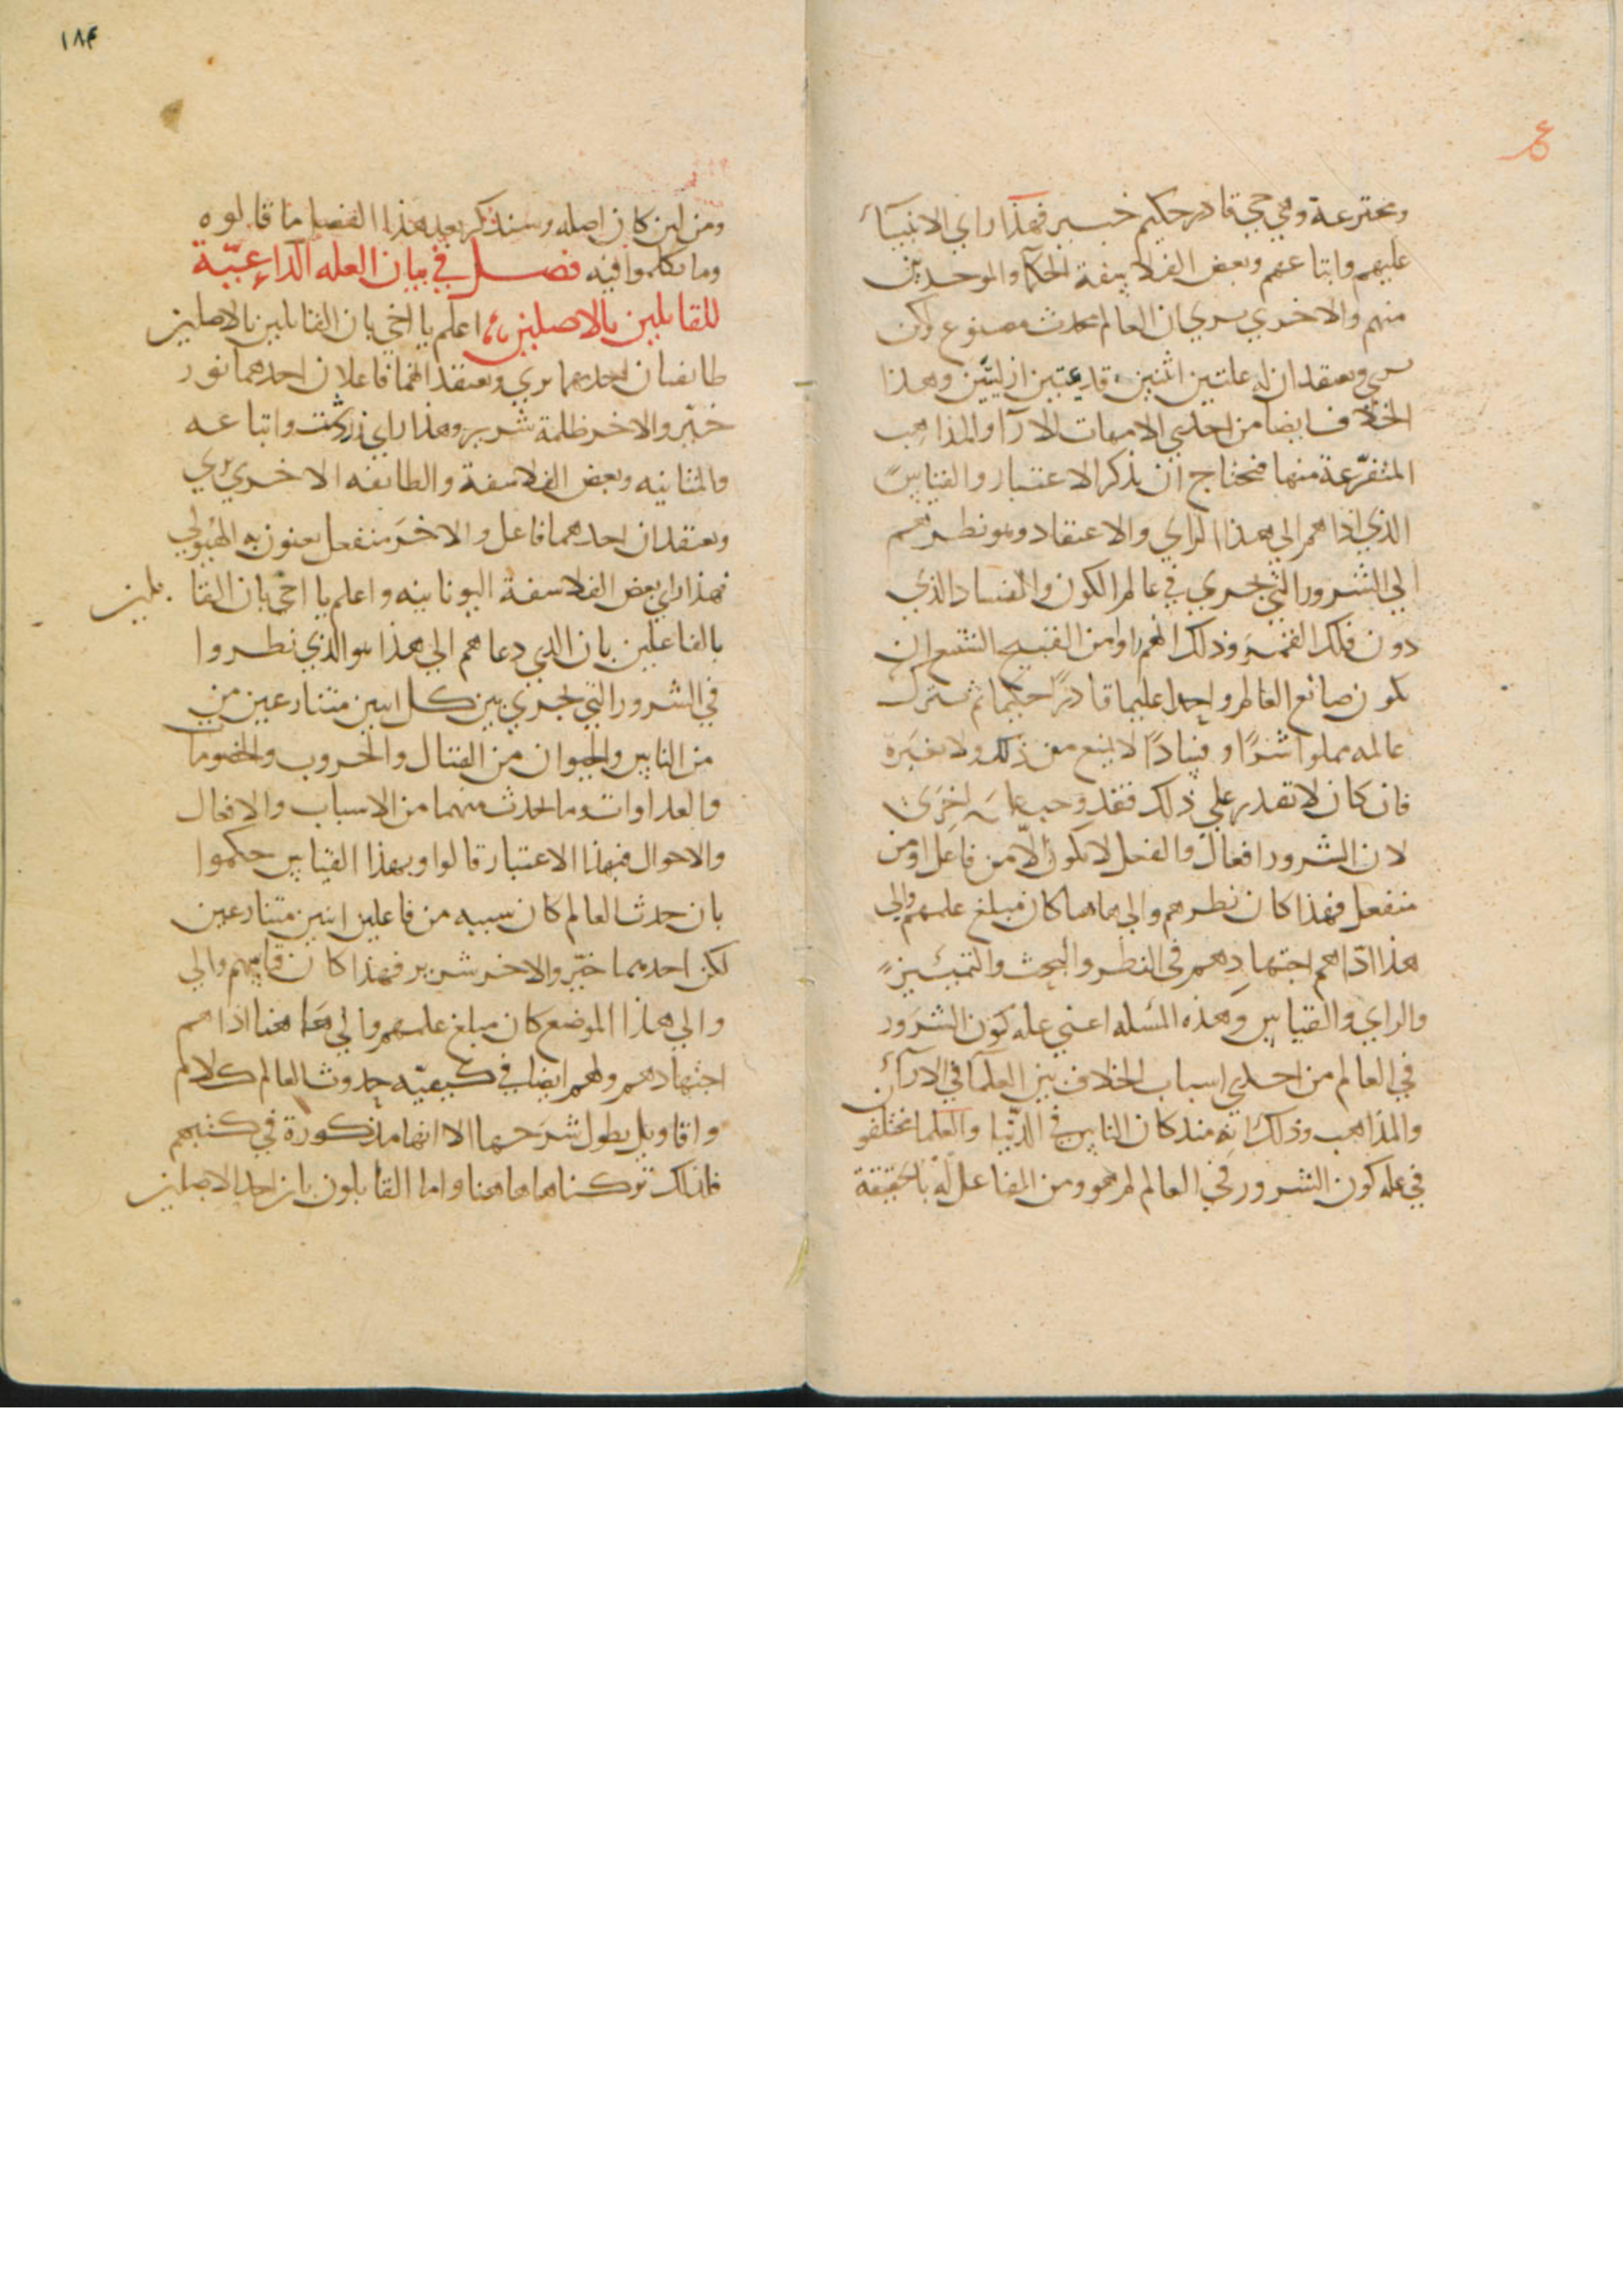 ومخترعة وهي حي قادر حكيم خبير فهذا راي الانبيآء
عليهم واتباعهم وبعض الفلاسفة الحكما والموحدين
منهم والاخرى يرى ان العالم محدث مصنوع ولكن
يرى ويعتقد ان له علتين اثنين قديمتين ازليتين وهذا
الخلاف ايضا من احدى الامهات الارآ والمذاهب
المتفرّعة منها فنحتاج ان نذكر الاعتبار والقياس
الذي اداهم الي هذا الراي والاعتقاد وهو نظرهم
الي الشرور التي تجري في عالم الكون والفساد الذي
دون فلك القمر وذلك انهم راوا من القبيح الشنيع ان
يكون صانع العالم واحدا عليما قادرًا حكيما ثم يترك
عالمه مملوا شرًا وفسادًا لا يمنع من ذلك ولا يغيره
فان كان لا تقدر علي ذلك فقد وجب اخرى
لان الشرور افعال والفعل لا يكون الّا من فاعل او من
منفعل فهذا كان نظرهم والي هاهنا كان مبلغ علمهم والي
هذا ادّاهم اجتهادهم في النظر والبحث والتمييز
والراي والقياس وهذه المسله اعني عله كون الشرور
في العالم من احدي اسباب الخلاف بين العلمآ في الارآء
والمذاهب وذلك انه منذ كان الناس في الدّنيا والعلما مختلفو
في عله كون الشرور في العالم لم هو ومن الفاعل له بالحقيقة
١٨۴
ومن اين كان اصله وسنذكر بعد هذا الفصل ما قالوه
وما تكلموا فيه فصل في بيان العله الداعيّة
للقايلين بالاصلين اعلم يا اخي بان القايلين بالاصلين
طايفتان احدهما يري ويعتقد انهما فاعلان احدهما نور
خيّر والاخر ظلمة شرير وهذا راي زردشت واتباعه
والمثانيه وبعض الفلاسفة والطايفه الاخري يري
ويعتقد ان احدهما فاعل والاخر منفعل يعنون به الهيولي
فهذا راي بعض الفلاسفة اليونانيه واعلم يا اخي بان القايلين
بالفاعلين بان الذي دعاهم الي هذا هو الذي نظروا
في الشرور التي تجري بين كل اثنين متنازعين من
من الناس والحيوان من القتال والحروب والخصومات
والعداوات وما يحدث منهما من الاسباب والافعال
والاحوال فبهذا الاعتبار قالوا وبهذا القياس حكموا
بان حدث العالم كان سببه من فاعلين اثنين متنازعين
لكن احدهما خيّر والاخر شرير فهذا كان قياسهم والي
والي هذا الموضع كان مبلغ علمهم والي هاهنا اداهم
اجتهادهم ولهم ايضا في كيفيّه حدوث العالم كلام
واقاويل يطول شرحها الا انها مذكورة في كتبهم
فلذلك تركناها هاهنا واما القايلون بان احد الاصلين